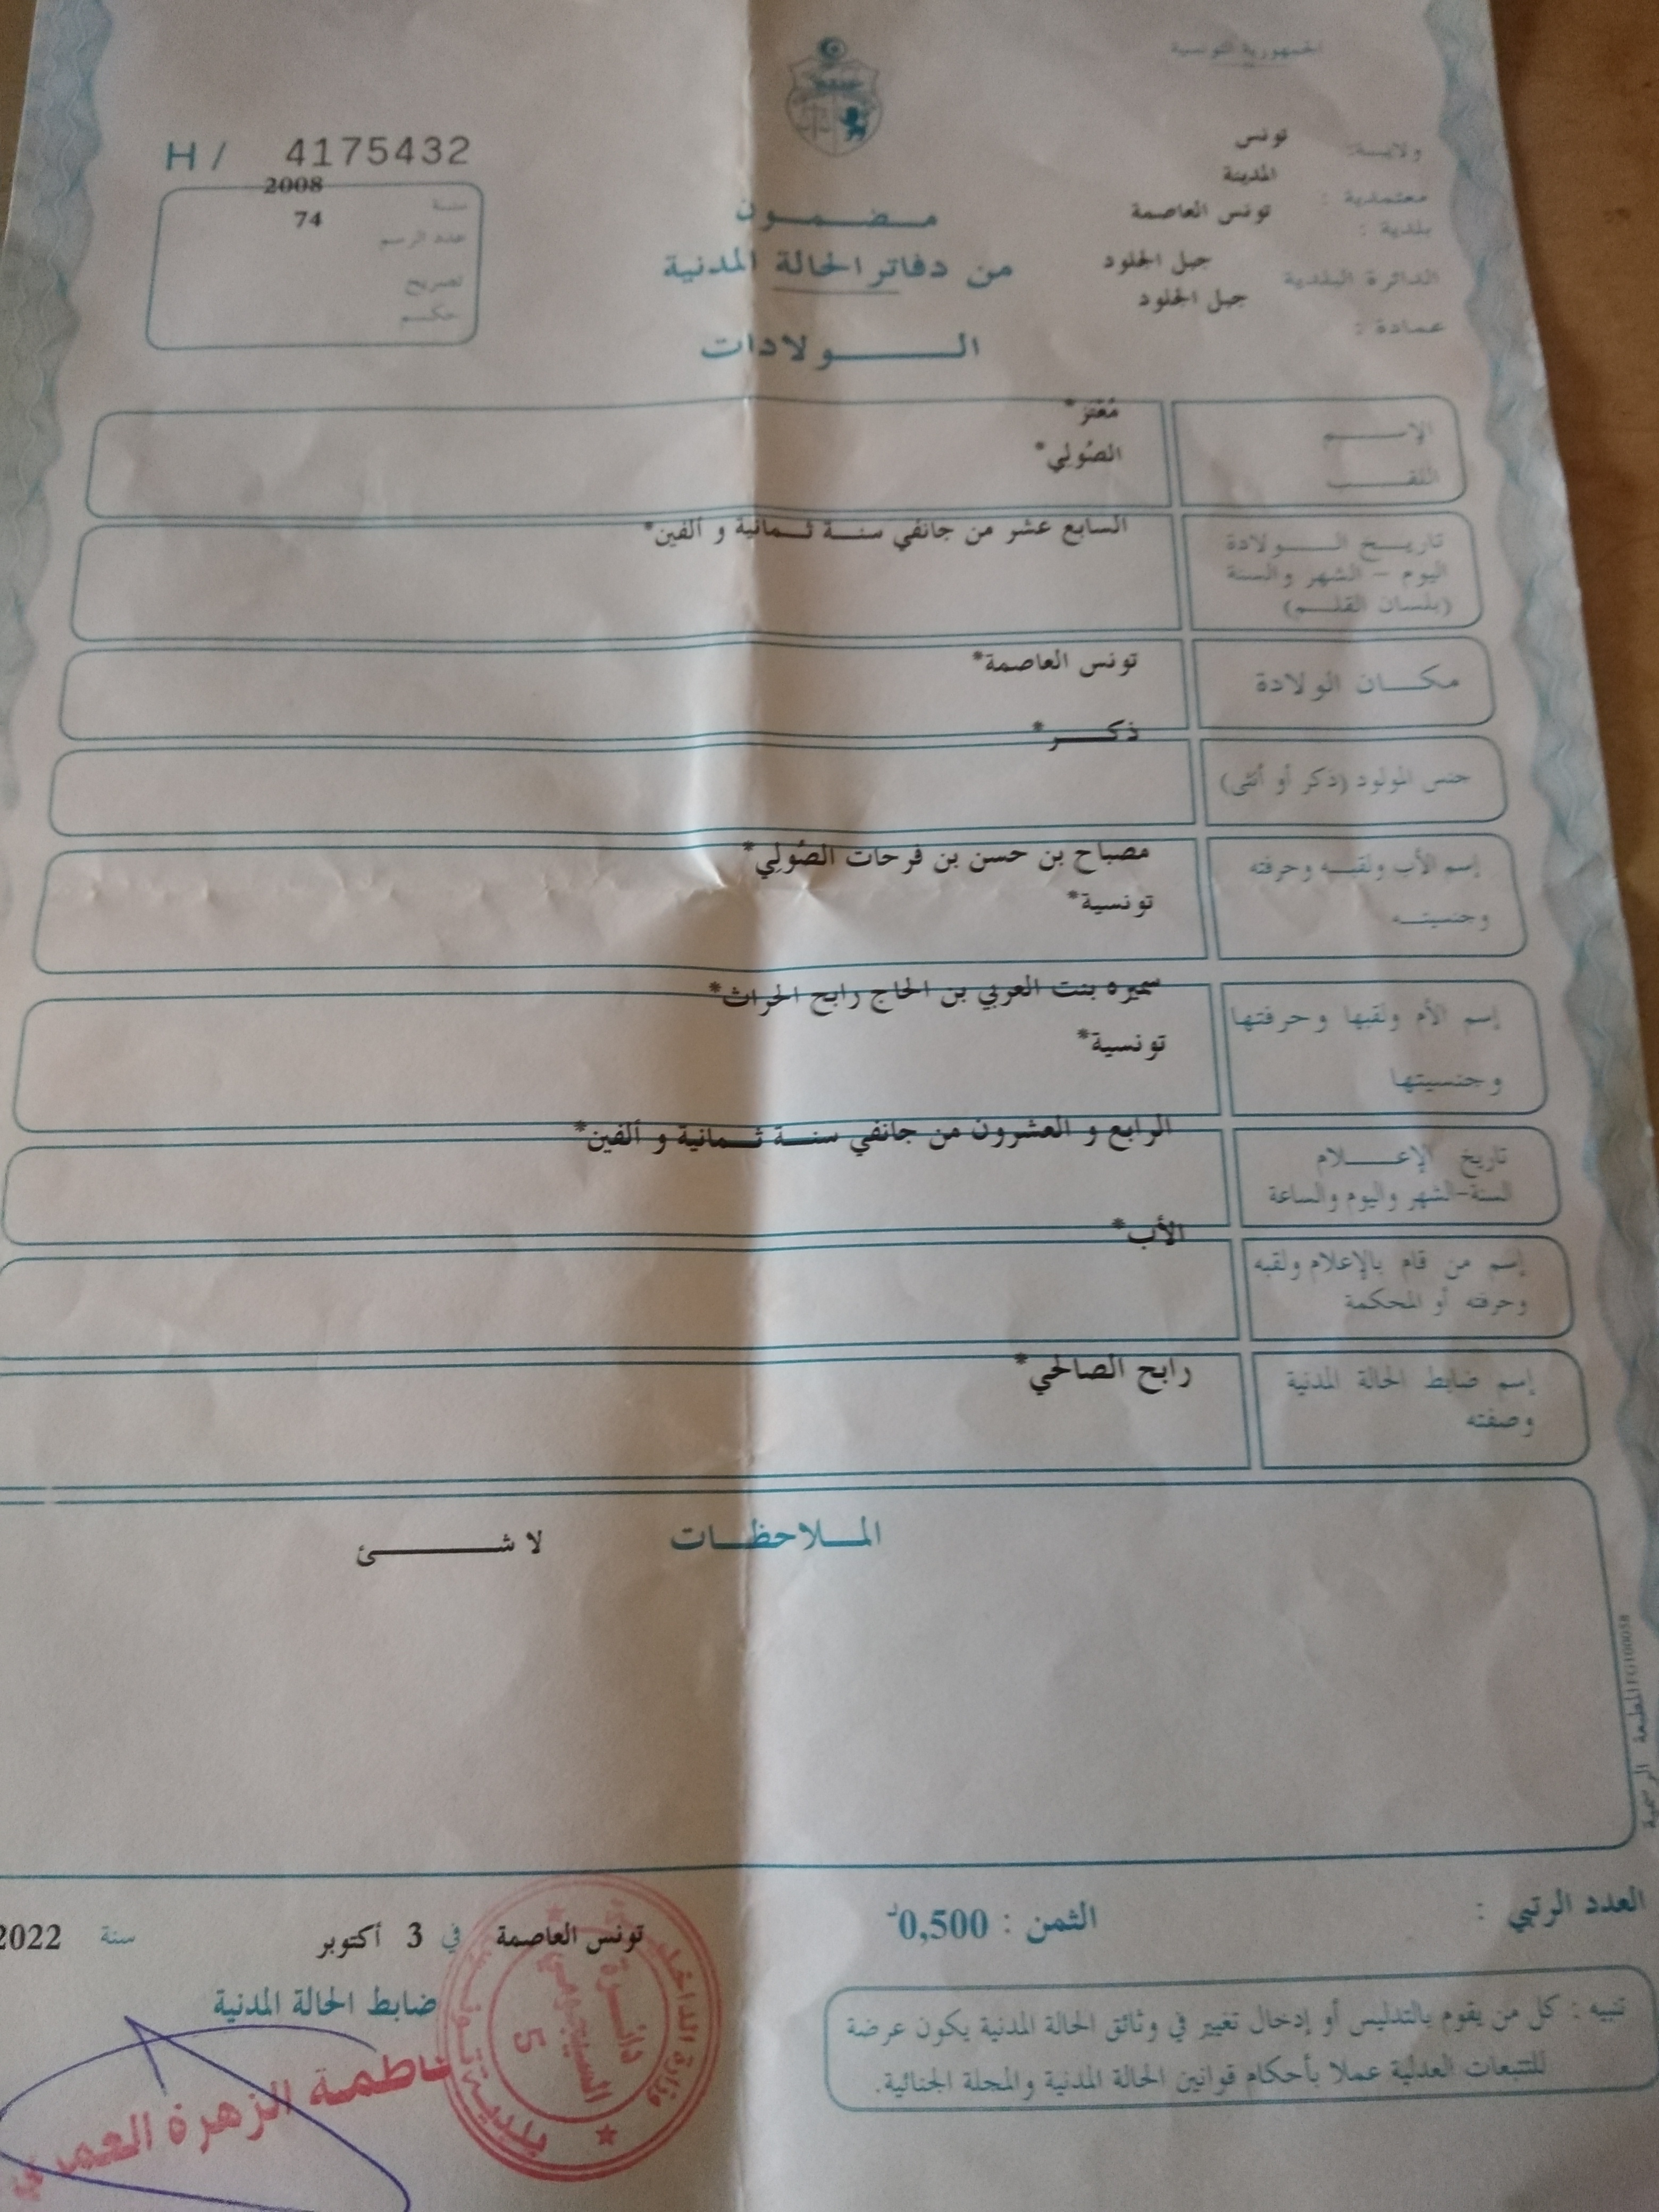 الجمهورية التونسية
ولايـة: تونس
معتمدية : المدينة
بلدية : تونس العاصمة
الدائرة البلدية جبل الجلود
عمادة : جبل الجلود
H / 4175432
سنة 2008
عدد الرسم 74
تصريح
حكـم
مـضـمـون
من دفاتر الحالة المدنية
الـولادات
الإسـم مُعْتز*
اللقـب الصُولِي*
تاريـخ الـولادة السابع عشر من جانفي سنـة ثـمانية و ألفين*
اليوم - الشهر والسنة
(بلسان القلـم)
مكـان الولادة تونس العاصمة*
جنس المولود (ذكر أو أنثى) ذكـر*
إسم الأب ولقبـه وحرفته مصباح بن حسن بن فرحات الصُولِي*
وجنسيتـه تونسية*
إسم الأم ولقبها وحرفتها سميره بنت العربي بن الحاج رابح الحراث*
وجنسيتها تونسية*
تاريخ الإعـلام الرابع و العشرون من جانفي سنـة ثـمانية و ألفين*
السنة-الشهر واليوم والساعة
إسم من قام بالإعلام ولقبه الأب*
وحرفته أو المحكمة
إسم ضابط الحالة المدنية رابح الصالحي*
وصفته
المـلاحظـات لا شـئ
المطبعة الرسمية
العدد الرتبي :
الثمن : 0,500د
تونس العاصمة في 3 أكتوبر سنة 2022
ضابط الحالة المدنية
تنبيه : كل من يقوم بالتدليس أو إدخال تغيير في وثائق الحالة المدنية يكون عرضة
للتتبعات العدلية عملا بأحكام قوانين الحالة المدنية والمجلة الجنائية.
وزارة الداخلية
دائـرة
السيجومي
5
بلدية تونس
فاطمة الزهرة العمري